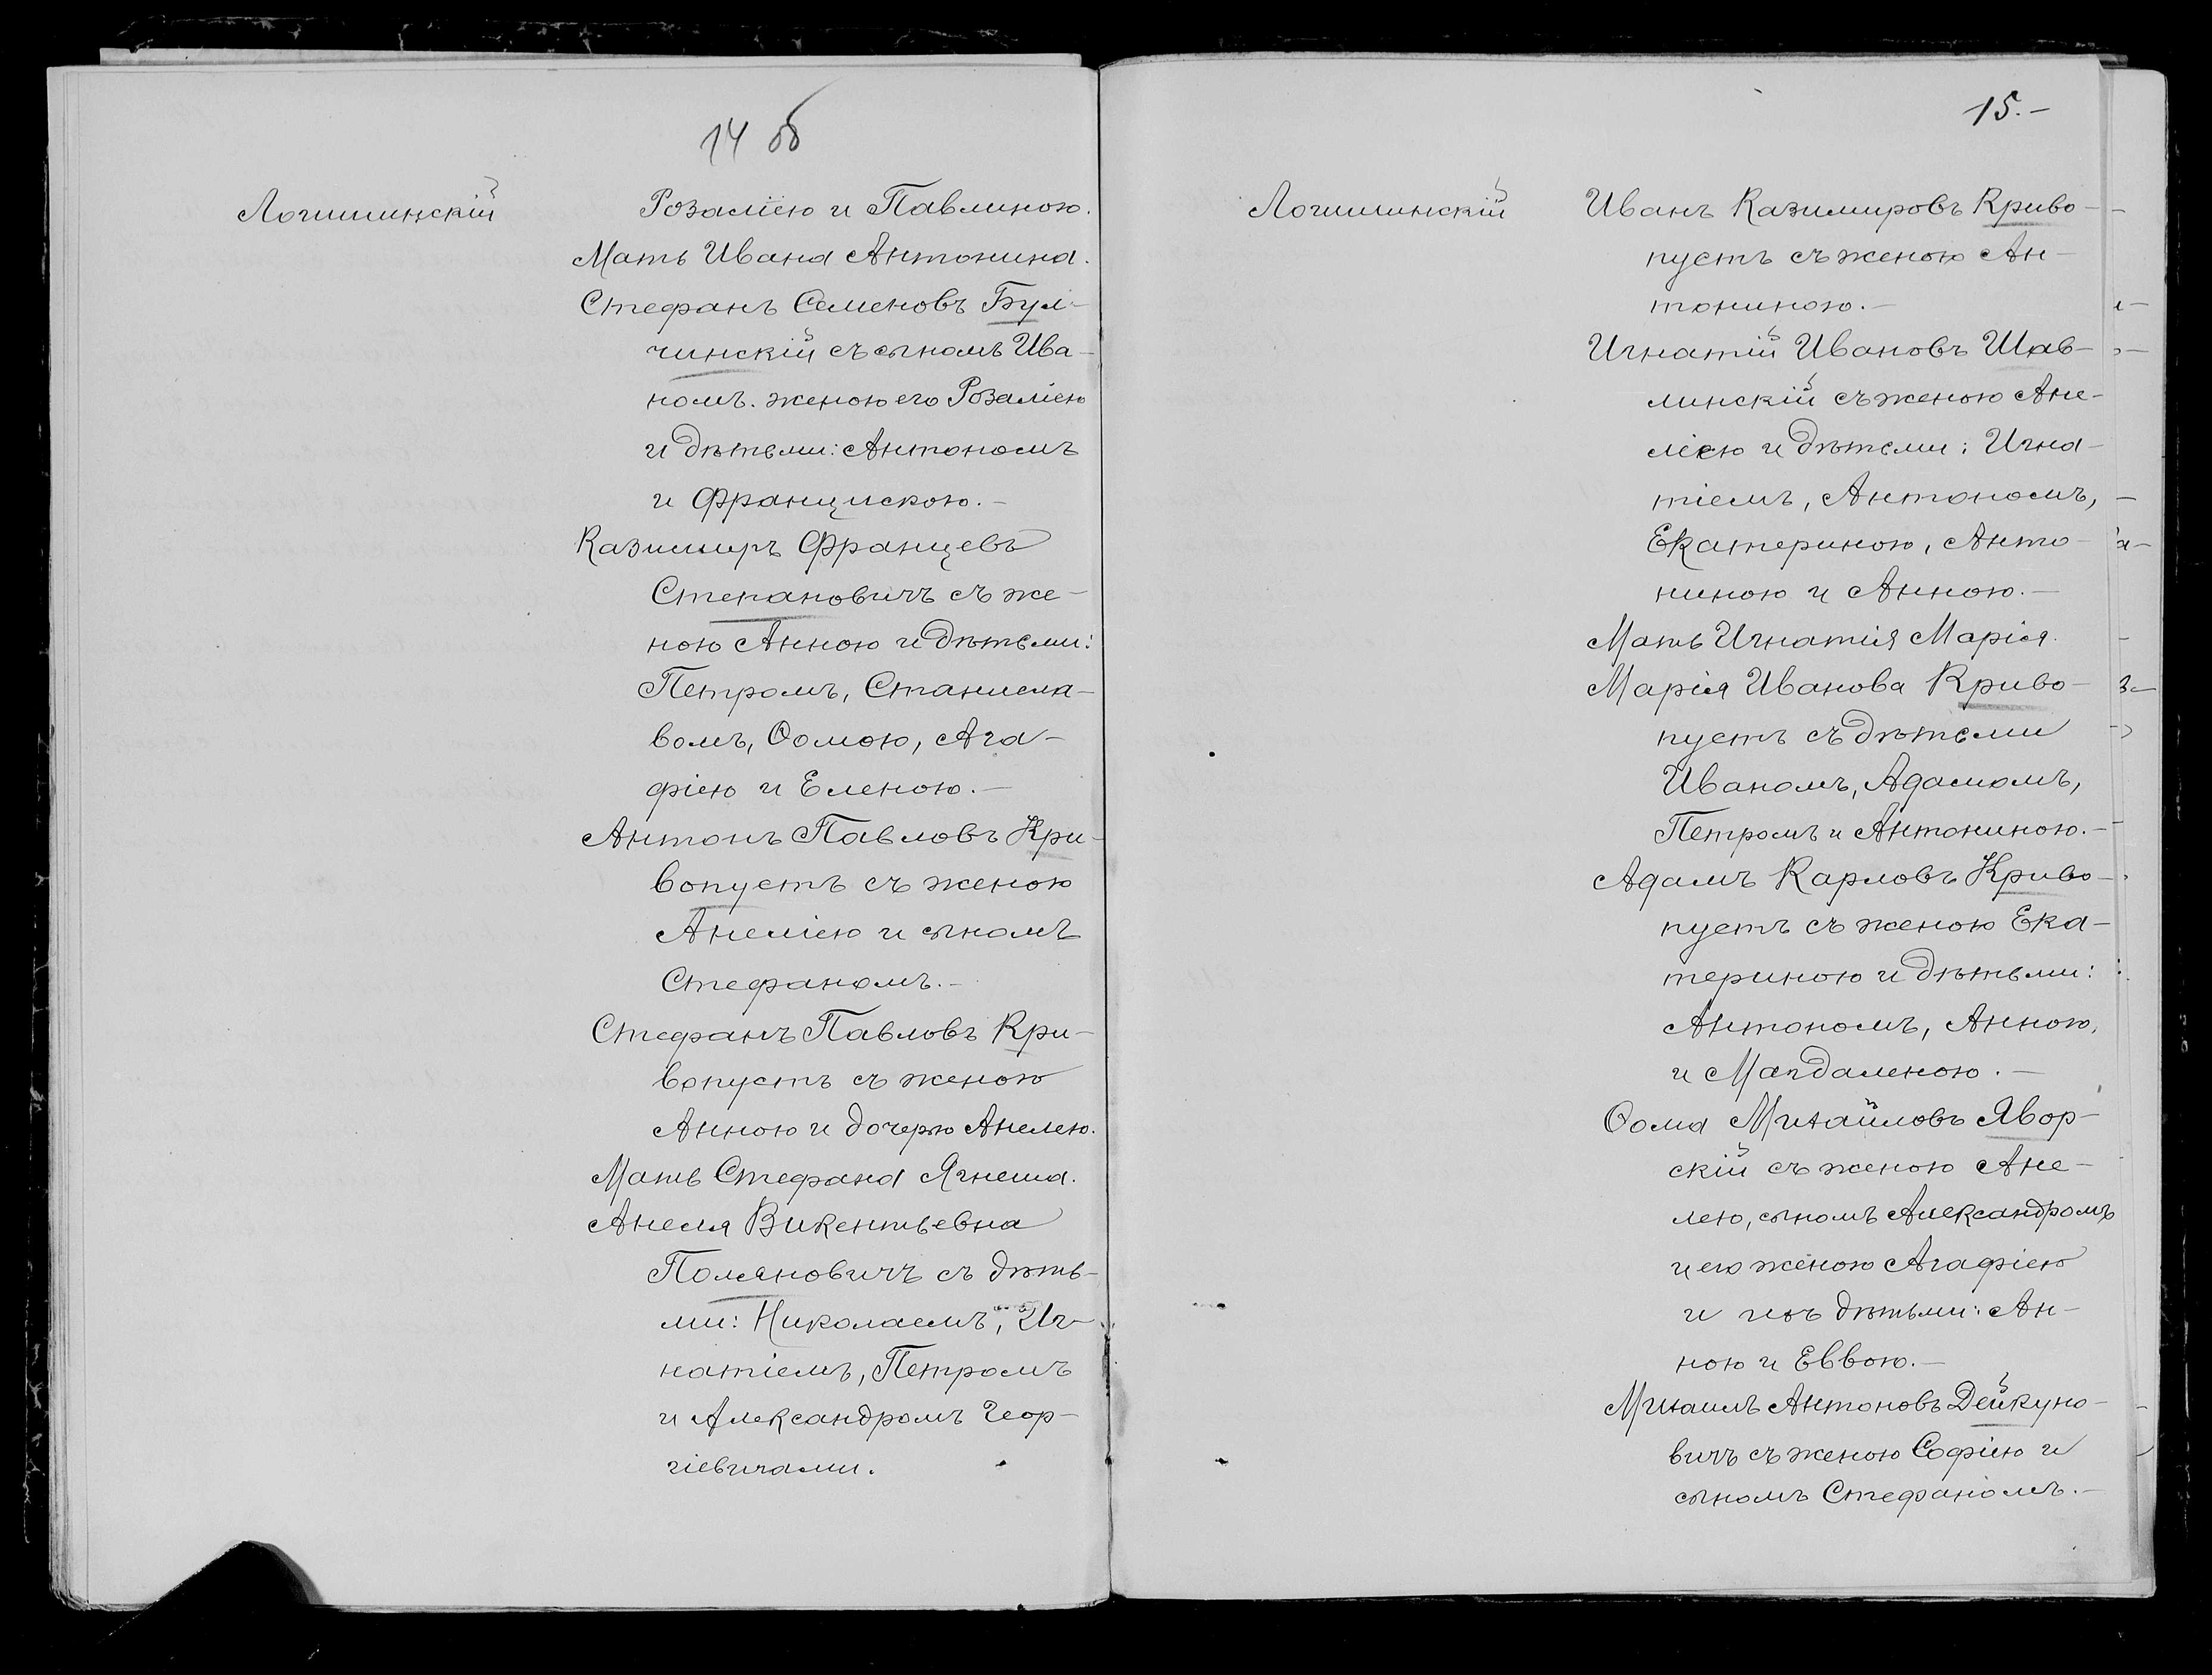 14 об
Логишинскій
Розаліею и Павлиною.
Мать Ивана Антонина.
Стефанъ Семеновъ Бул-
чинскій съ сыномъ Ива-
номъ. женою его Розаліею
и дѣтьми: Антономъ
и Францискою.-
Казимиръ Францевъ
Степановичъ съ же-
ною Анною и дѣтьми:
Петромъ, Станисла-
вомъ, Ѳомою, Ага-
фіею и Еленою.-
Антонъ Павловъ Кри-
вопустъ съ женою
Анеліею и сыномъ
Стефаномъ.-
Стефанъ Павловъ Кри-
вопустъ съ женою
Анною и дочерью Анелею.
Мать Стефана Ягнеша.
Анеля Викентьевна
Поляновичъ съ дѣть-
ми: Николаемъ, Иг-
натіемъ, Петромъ
и Александромъ Геор-
гіевичами.
15.-
Логишинскій
Иванъ Казимировъ Криво-
пустъ съ женою Ан-
тониною.-
Игнатій Ивановъ Шав-
линскій съ женою Ане-
ліею и дѣтьми: Игна-
тіемъ, Антономъ,
Екатериною, Анто-
ниною и Анною.-
Мать Игнатія Марія.
Марія Иванова Криво-
пустъ съ дѣтьми
Иваномъ, Адамомъ,
Петромъ и Антониною.-
Адамъ Карловъ Криво-
пустъ съ женою Ека-
териною и дѣтьми:
Антономъ, Анною,
и Магдаленою.-
Ѳома Михайловъ Явор-
скій съ женою Ане-
лею, сыномъ Александромъ
и его женою Агафіею
и ихъ дѣтьми: Ан-
ною и Еввою.-
Михаилъ Антоновъ Дейкуно-
вичъ съ женою Софіею и
сыномъ Стефаномъ.-